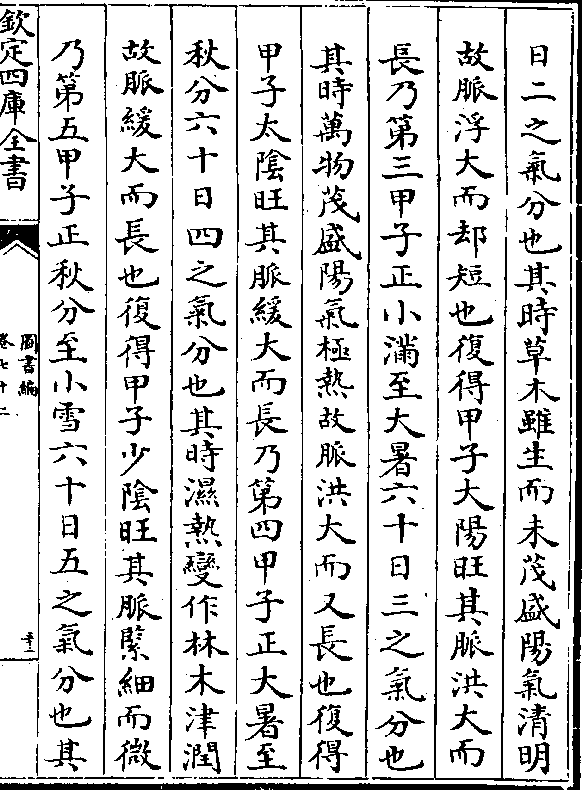 日二之氣分也其時草木雖生而未茂盛陽氣清明
故脈浮大而却短也復得甲子大陽旺其脈洪大而
長乃第三甲子正小滿至大暑六十日三之氣分也
其時萬物茂盛陽氣極熱故脈洪大而又長也復得
甲子太陰旺其脈緩大而長乃第四甲子正大暑至
秋分六十日四之氣分也其時濕熱變作林木津潤
故脈緩大而長也復得甲子少陰旺其脈緊細而微
乃第五甲子正秋分至小雪六十日五之氣分也其
欽定四庫全書
圖書編
卷七十二